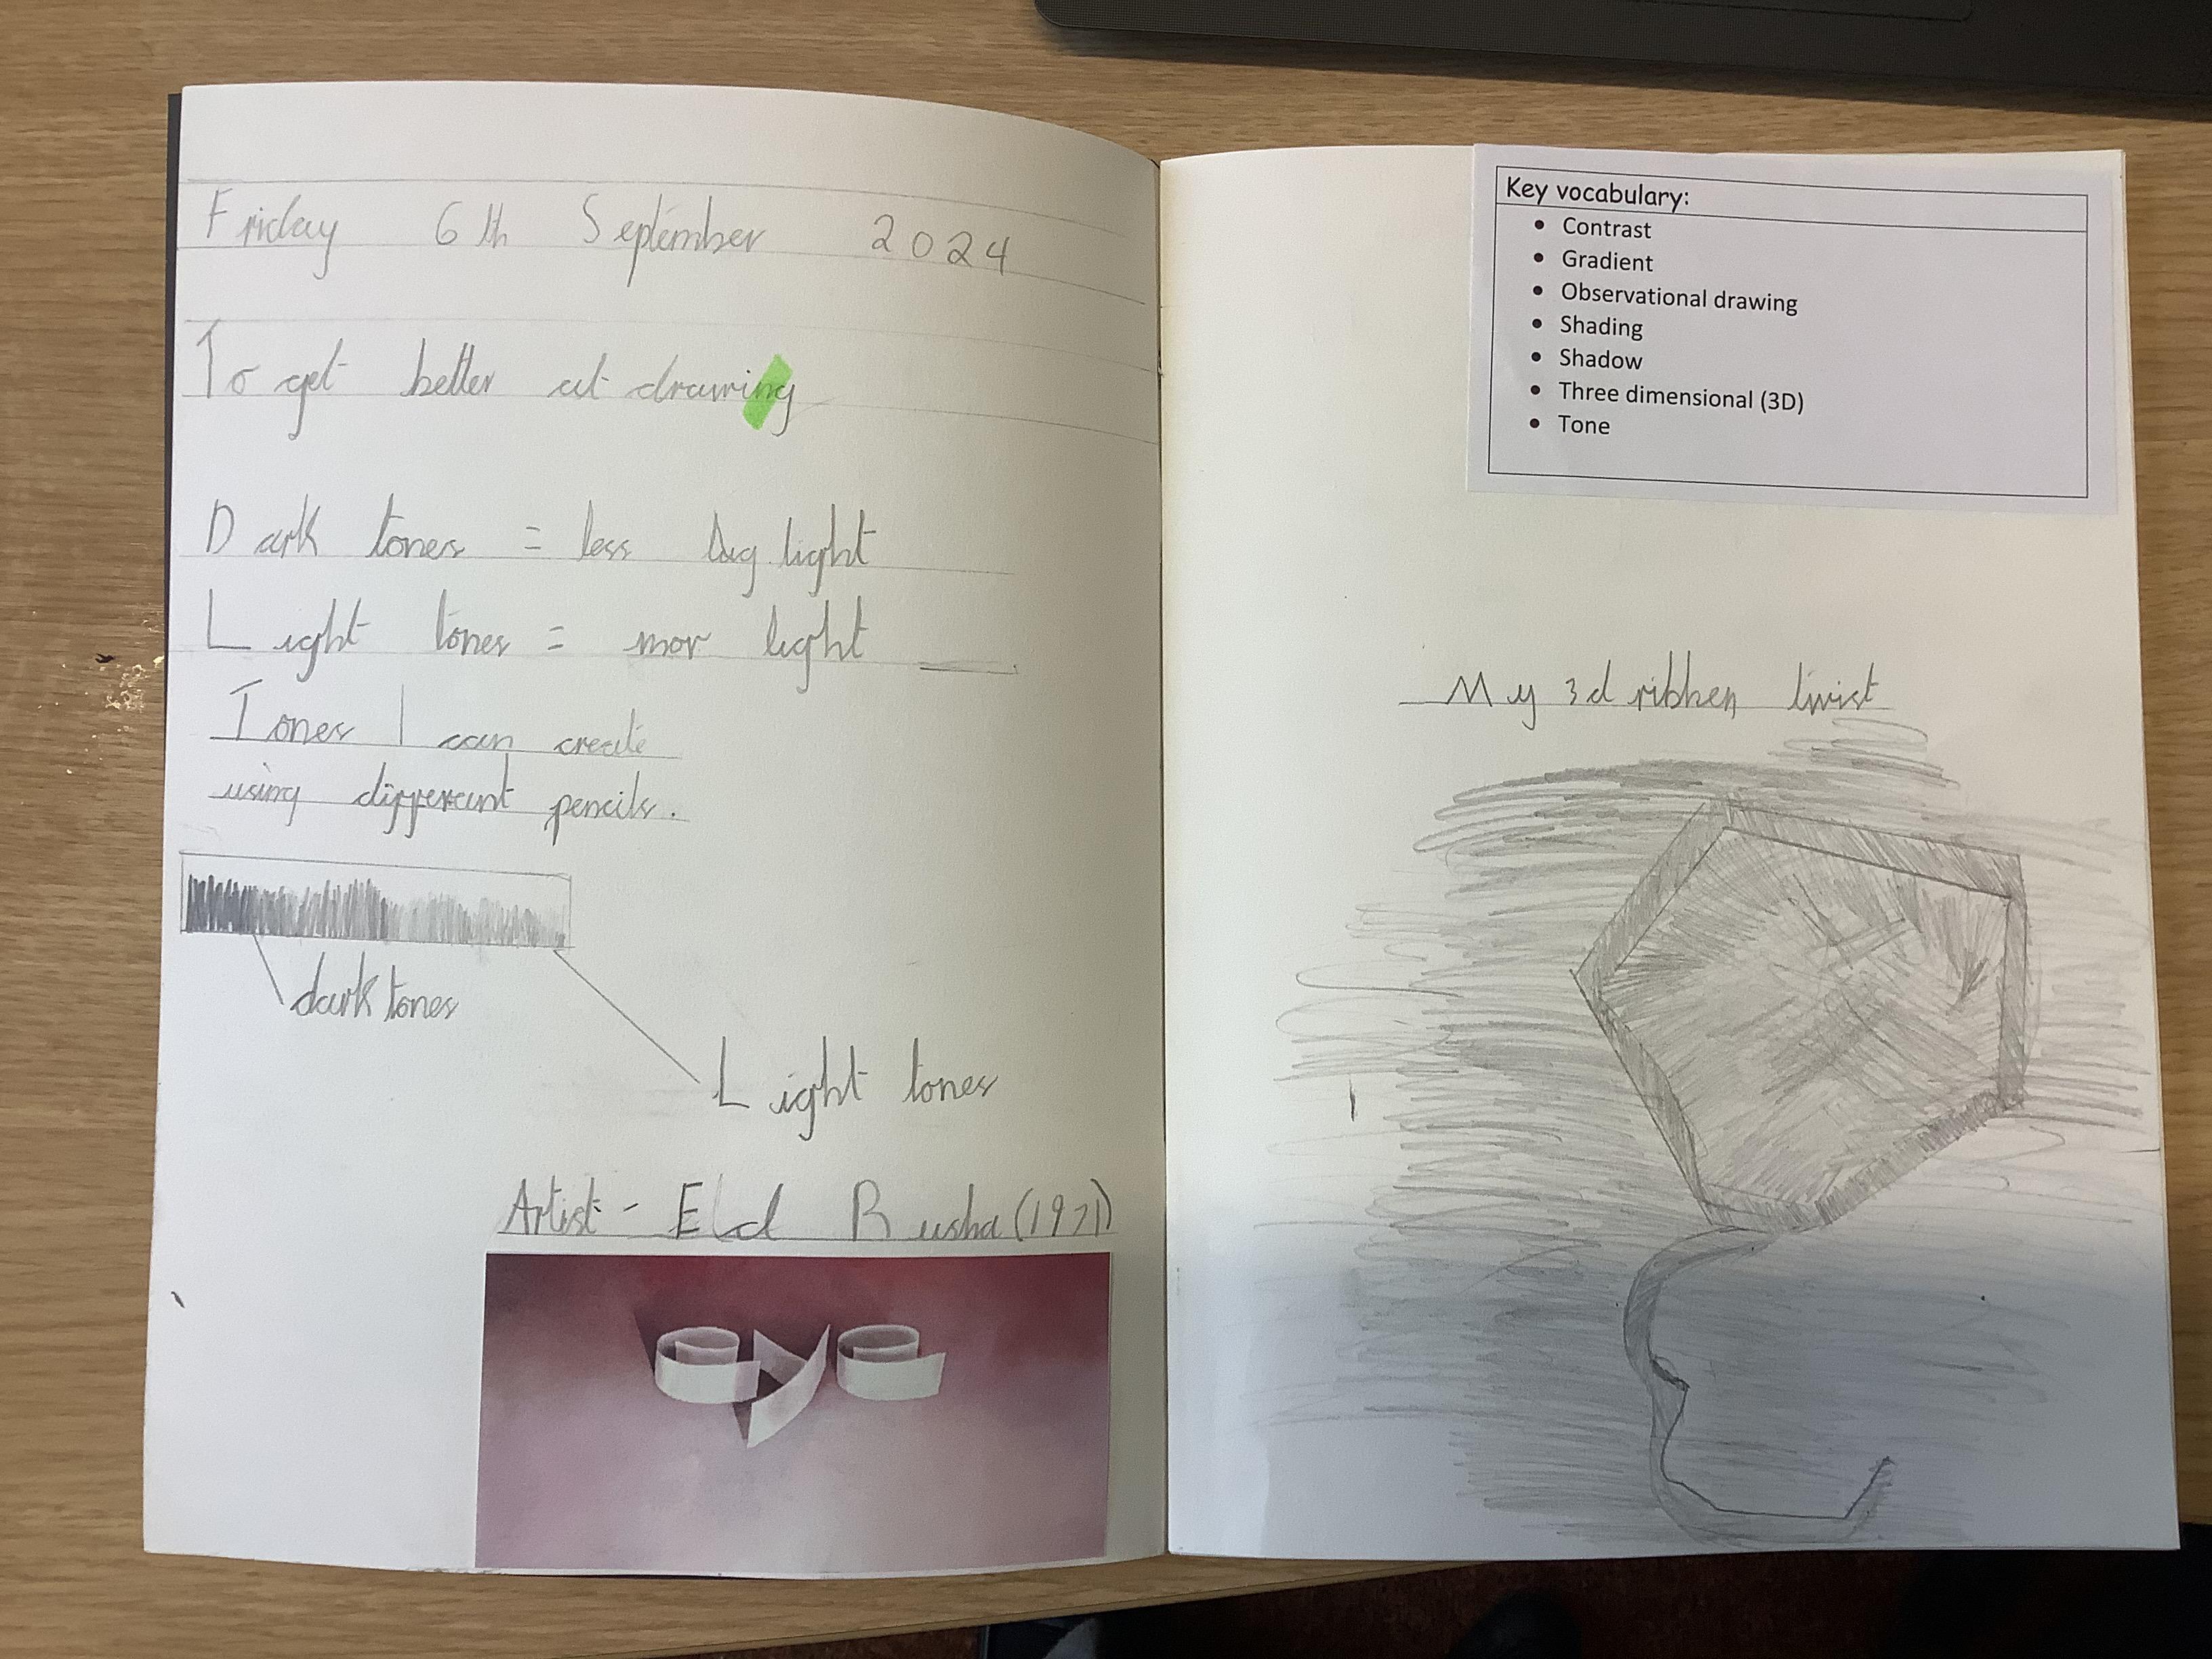 Friday 6th September 2024
To get better at drawing
Dark tones = less light
Light tones = mor light
Tones I can create
using different pencils.
dark tones
Light tones
Artist - Ed Rusha (1971)
Key vocabulary:
• Contrast
• Gradient
• Observational drawing
• Shading
• Shadow
• Three dimensional (3D)
• Tone
My 3d ribben twist